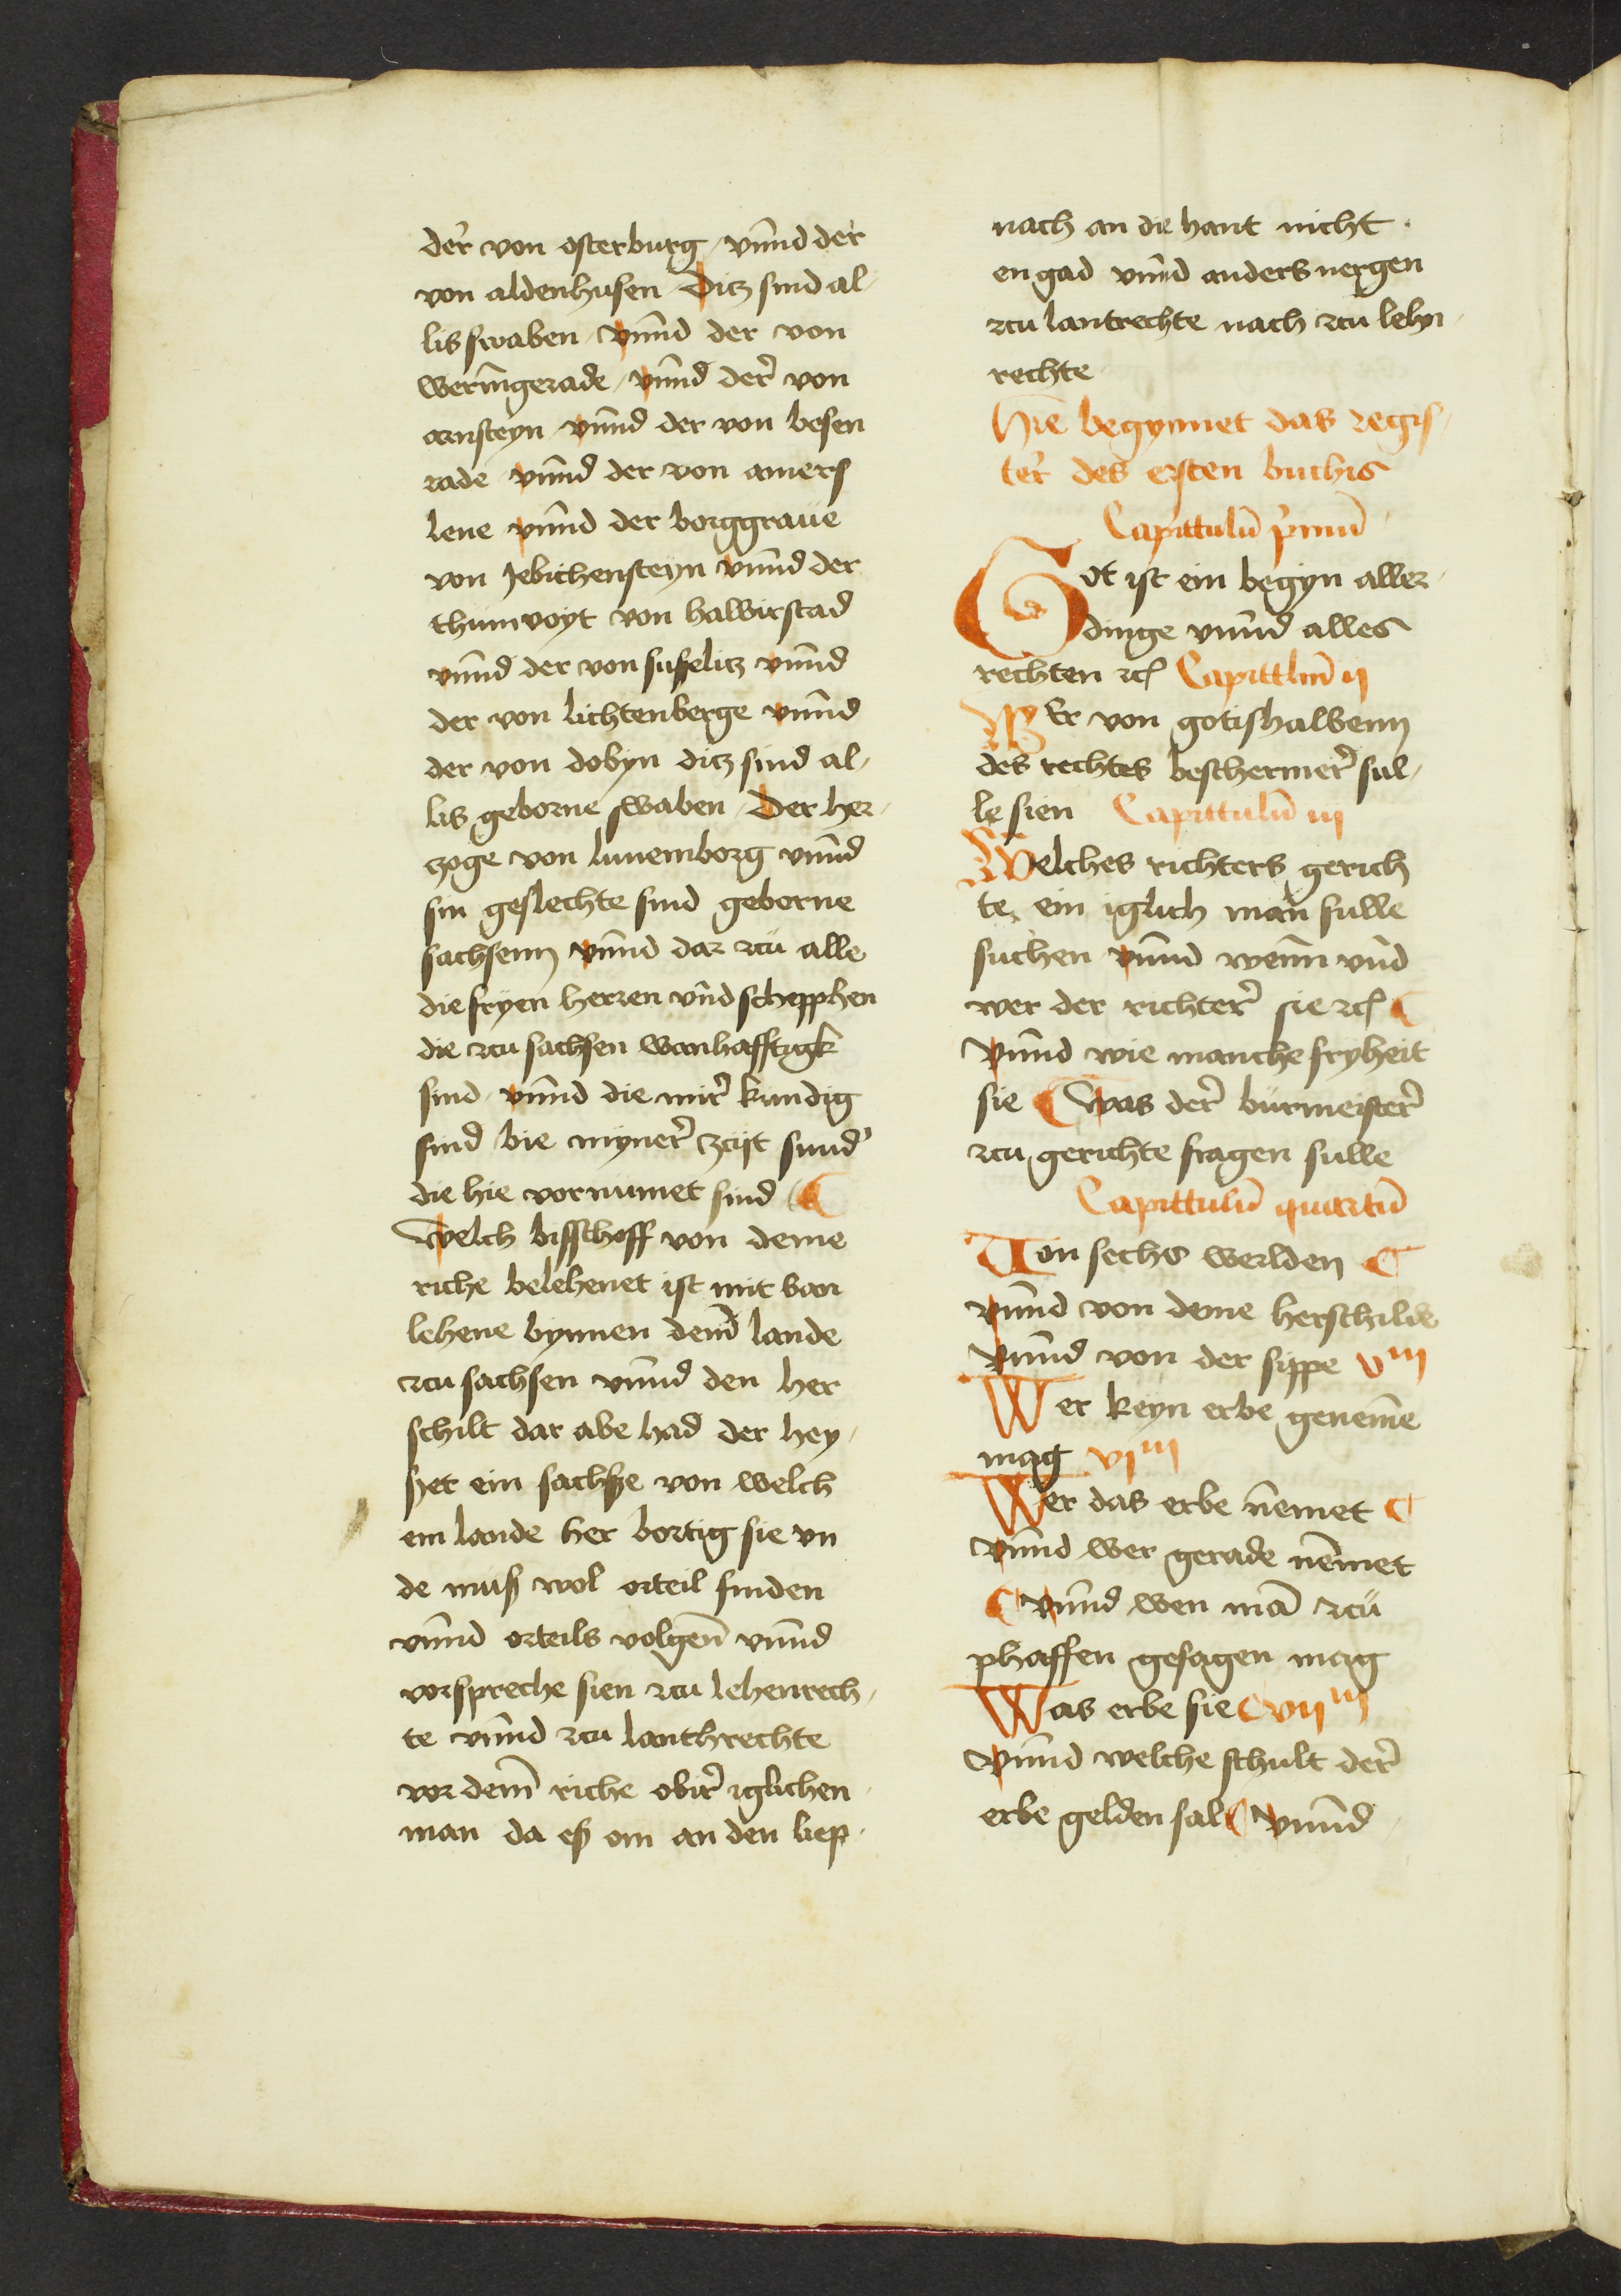 der von osterburg / vnnd der
von aldenhusen ditz sind al-
lis swaben / vnnd der von
weringerade / vnnd der von
arnsteyn / vnnd der von besen
rade vnnd der von amers
leue vnnd der borggraue
von Jebichensteyn vnnd der
thumvoyt von halbirstad
vnnd der von suselitz vnnd
der von lichtenberge vnnd
der von dobyn ditz sind al-
lis geborne swaben / Der her-
zoge von lunemborg vnnd
sin geslechte sind geborne
sachsenn vnnd dar zcu alle
die fryen herren vnd schepphen
die zcu sachsen wanhafftigk
sind / vnnd die mir kundig
sind bie myner zcijt sund'
die hie vornumet sind
Welch bisschoff von deme
riche belehenet ist mit van
lehene bynnen dem̄ lande
zcu sachsen vnnd den her
schilt dar abe had der hey-
ßet ein sachße von welch
em lande her bortig sie vn
de muß wol orteil finden
vnnd orteils volgen̄ vnnd
vorspreche sien zcu lehenrech-
te vnnd zcu lanthrechte
vor dem̄ riche obir iglichen
man da eß om an den liep
nach an die hant nicht
en gad vnnd anders nergen
zcu lantrechte nach zcu lehn-
rechte
Hie begynnet das regis-
ter des ersten buchis
Capittulū pͥmū
Got ist ein begyn aller
dinge vnnd alles
rechten ꝛcͥ Capittlm̄ ij
WEr von gotishalbenn
des rechtes beschermer sul-
le sien Capittulū iij
Welches richters gerich
te ein iglich man sulle
suchen vnnd wenn vnd
wer der richter sie ꝛcͥ
Vnnd wie manche fryheit
sie Was der burmeister
zcu gerichte fragen sulle
Capittulū quartū
Von sechs werlden
vnnd von deme herschilde
Vnnd von der sippe vᵐ
Wer keyn erbe genem̄e
mag vjᵐ
Wer das erbe nemet
Vnnd wer gerade nemet
Vnnd wen mā zcu
phaffen gesagen mag
Was erbe sie vijᵐ
Vnnd welche schult der
erbe gelden sal Vnnd